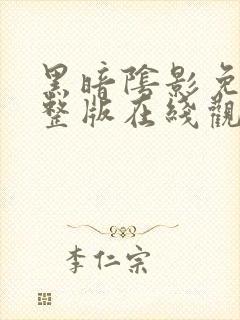 黑暗陰影免
整版在綫觀
李仁宗